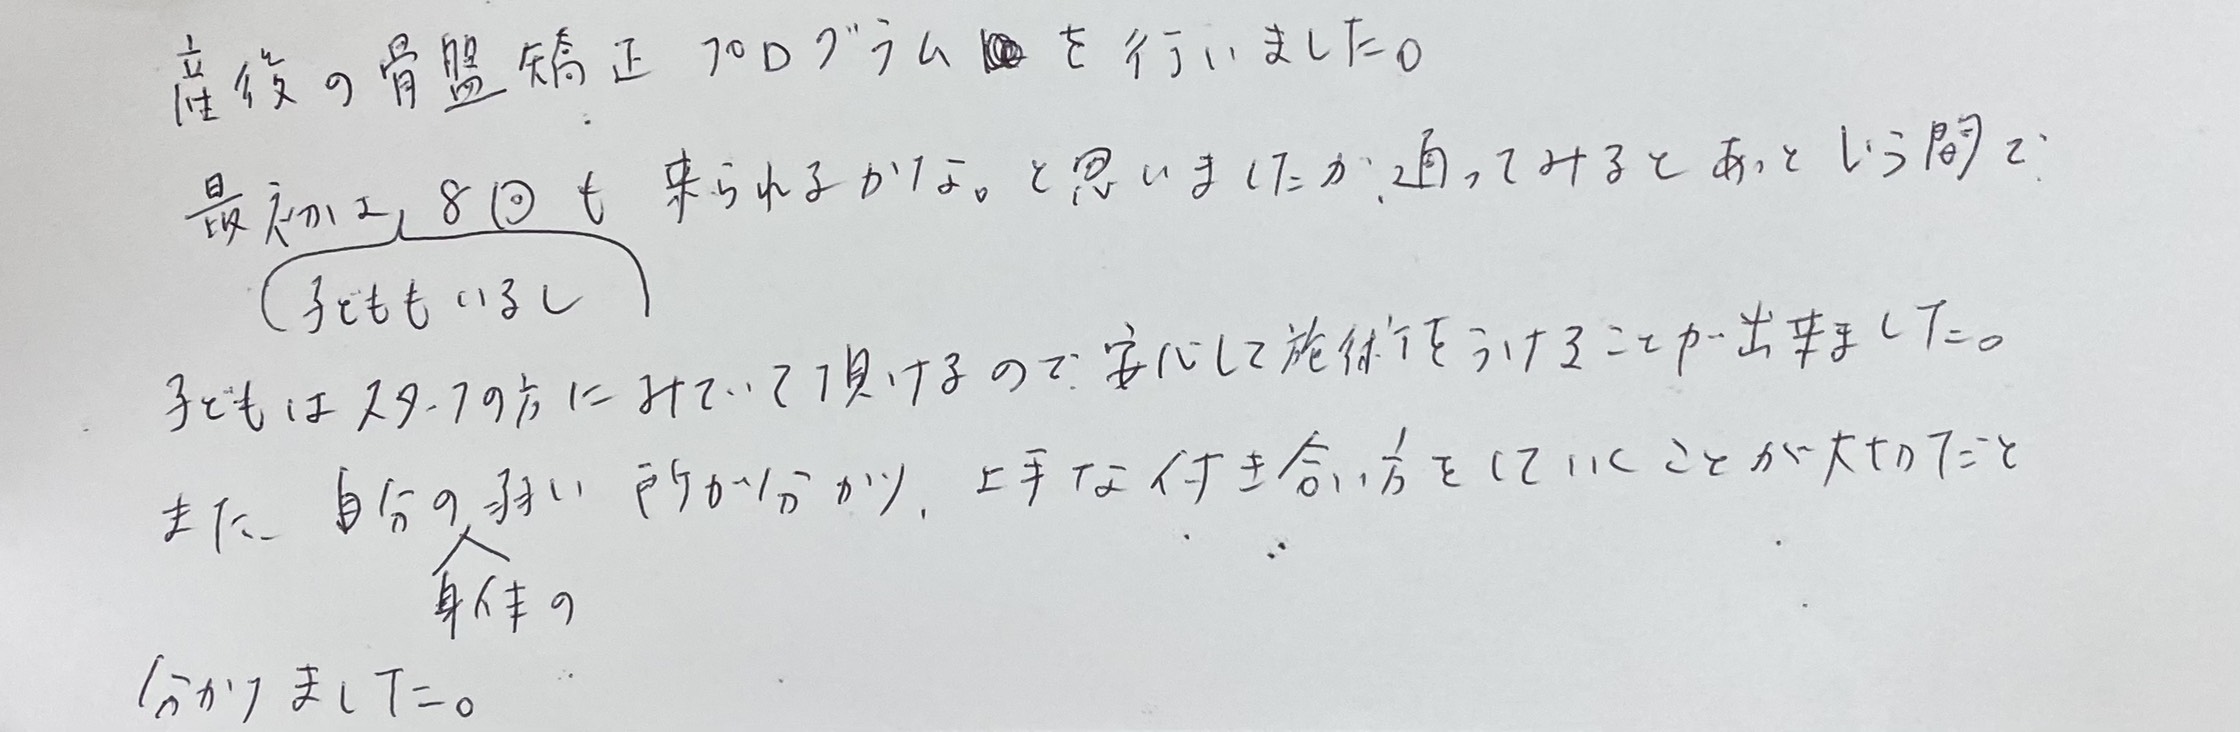 産後の骨盤矯正プログラムを行いました。
最初は、8回も来られるかな。と思いましたが、通ってみるとあっという間で
(子どももいるし)
子どもはスタッフの方にみていて頂けるので安心して施術をうけることが出来ました。
また、自分の弱い所が分かり、上手な付き合い方をしていくことが大切だと
身体の
分かりました。